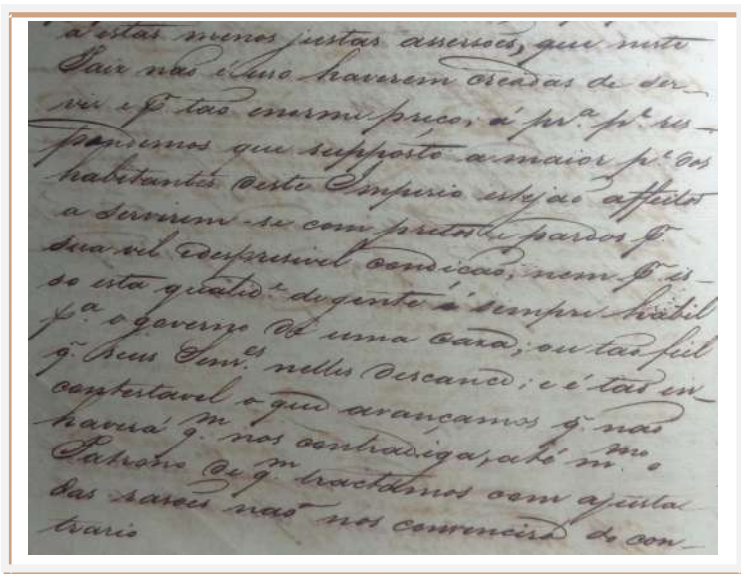 a estas menos justas asserções, que neste
Paiz não é uso haverem creadas de ser-
vir e p. tao enorme preço; á pr.ª p.e res-
pondemos que supposto a maior p.e dos
habitantes deste Imperio estejão affeitos
a servirem-se com pretos e pardos p.
sua vil e despresivel condicão, nem p. is-
so esta qualid.e de gente é sempre habil
p.ª o governo de uma casa, ou tao fiel
q. seus Senr.es nelles descance; e é tão in-
contestavel o que avançamos q. não
haverá q.m nos contradiga, até m.mo o
Patrono de q.m tractamos com ajusta
das rasões naõ nos convencirá do con-
trario